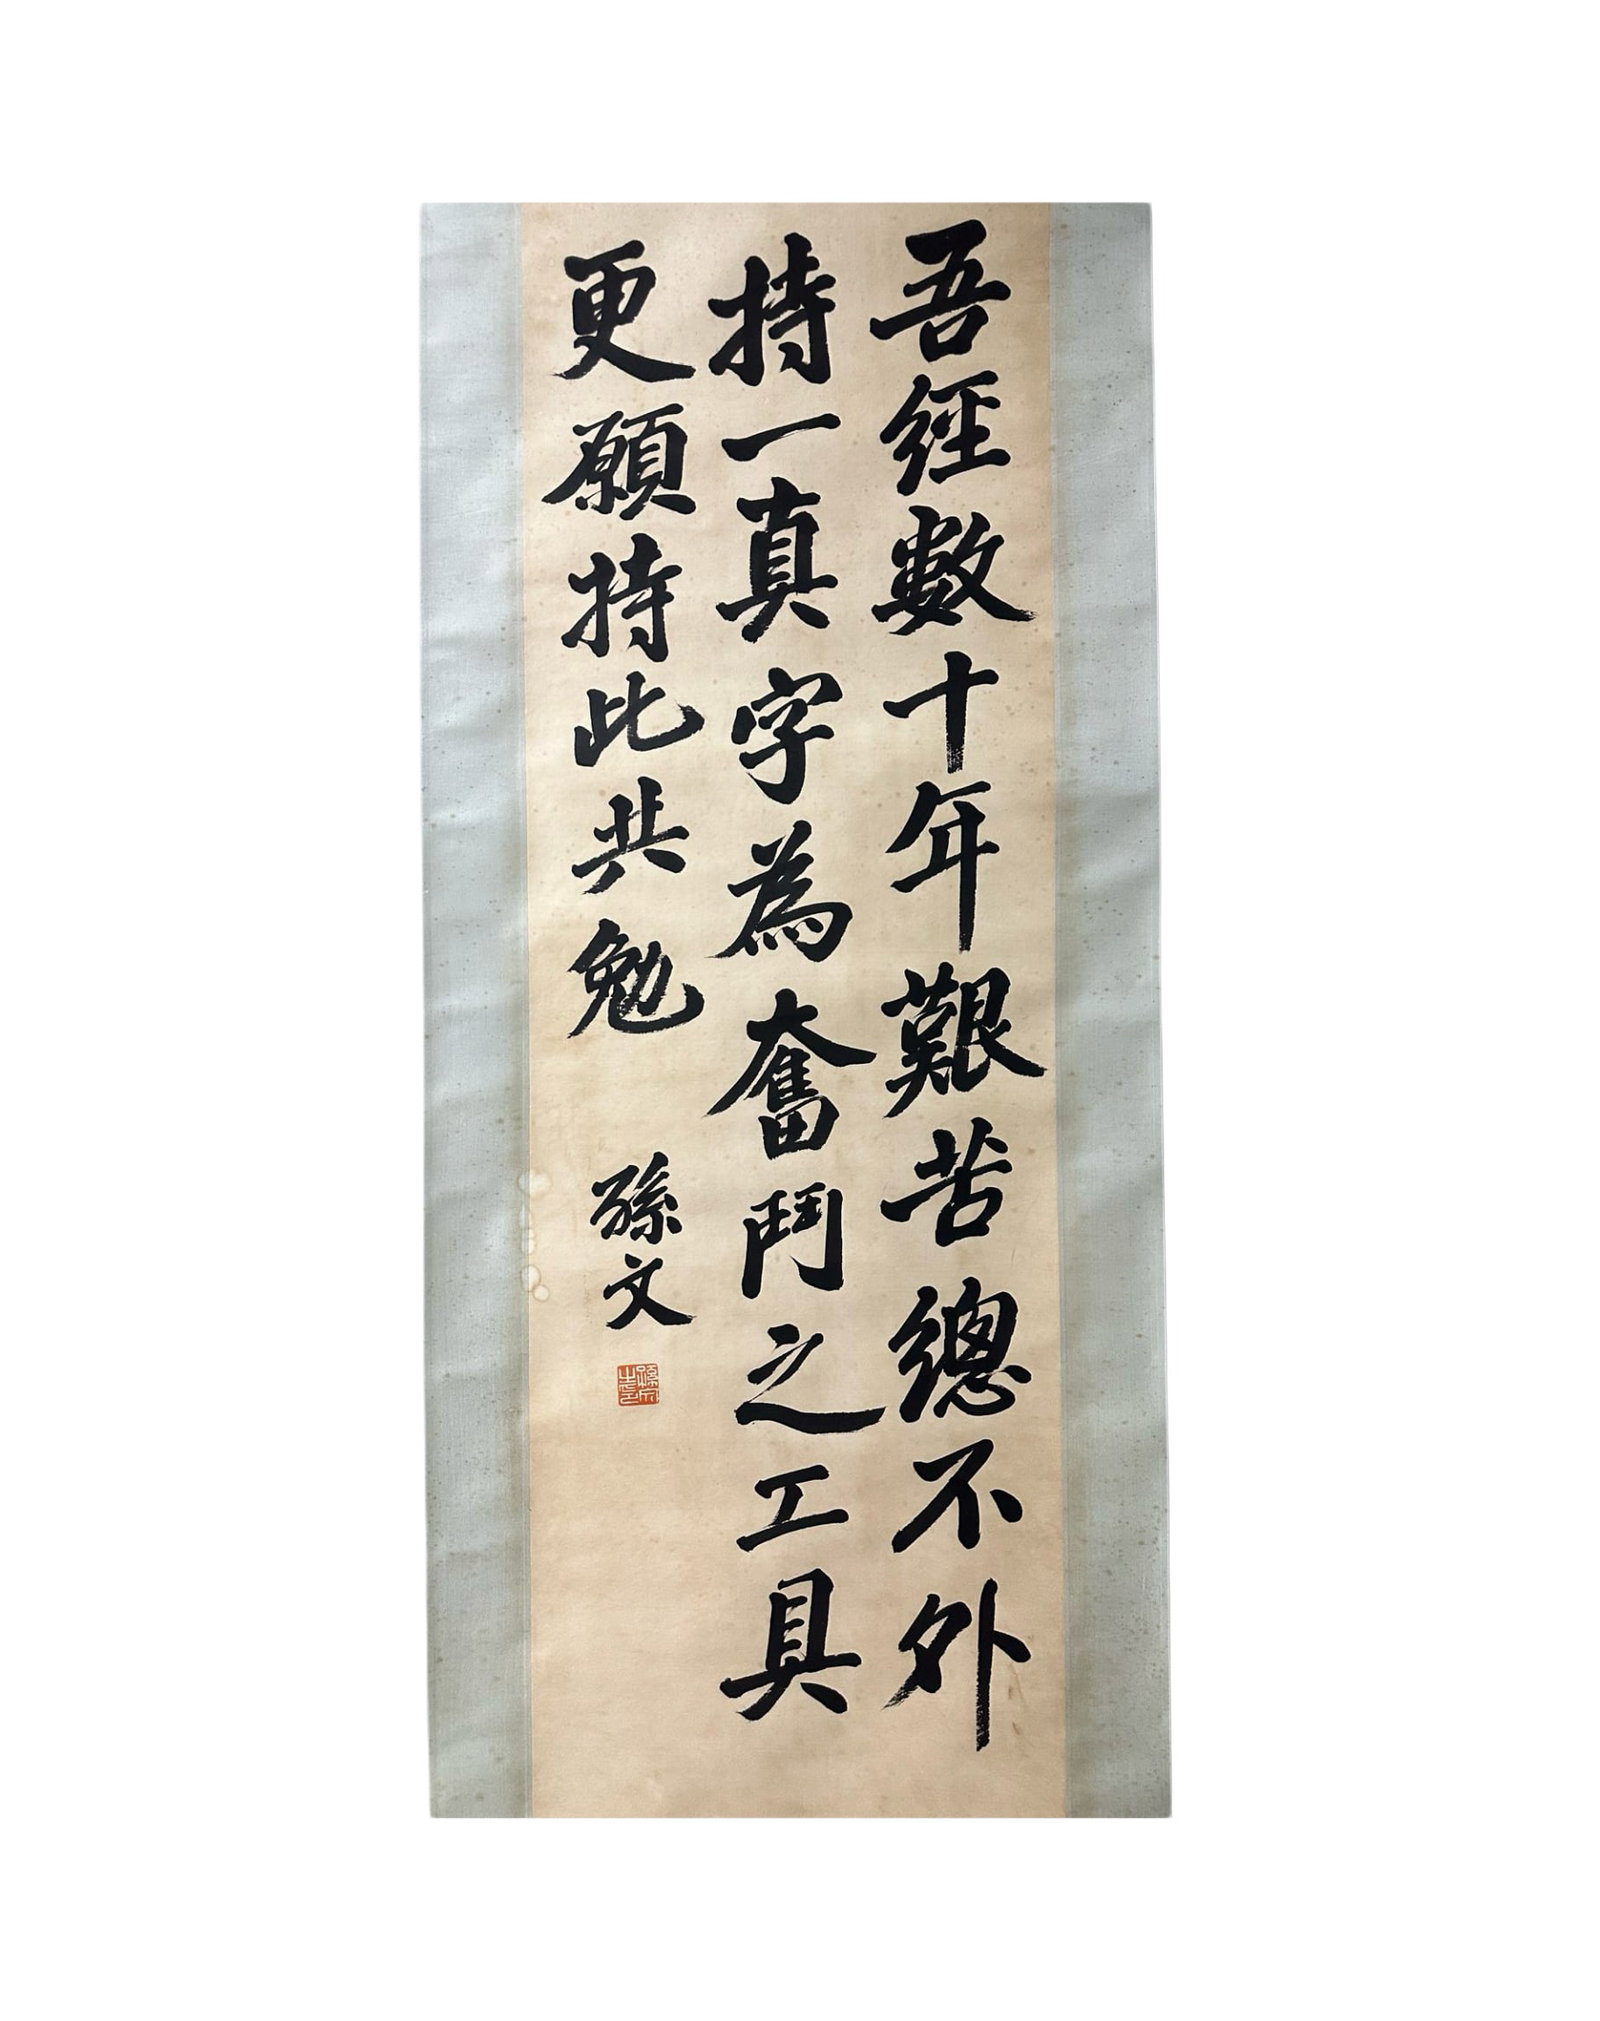 吾經數十年艱苦總不外
持一真字為奮鬥之工具
更願持此共勉
孫文
孫文之印